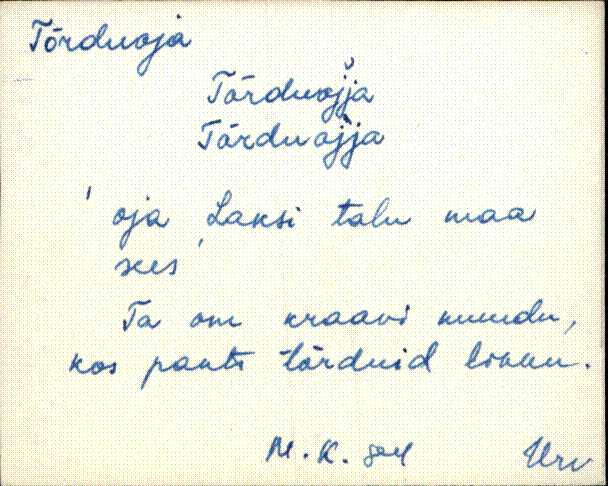 Tõrduoja
Tõrduojja
Tõrduojja
' oja Laksi talu maa
sees '
Ta om kraavi muudu,
kos panti tõrduid likku.
M. K.
Urv